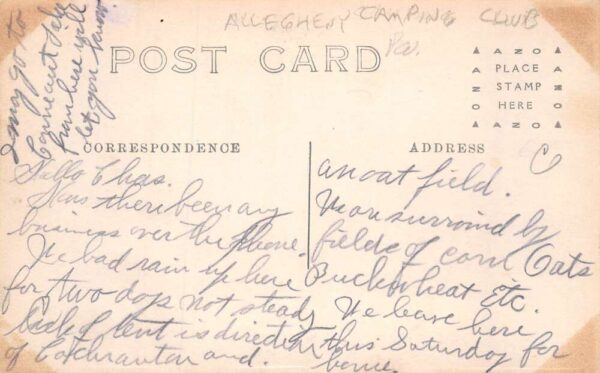 ALLEGHENY CAMPING CLUB
Pa.
I may go to
Conneaut Lake
from here will
let you know.
POST CARD
AZO
PLACE
STAMP
HERE
AZO
CORRESPONDENCE
ADDRESS
Hello Chas.
Has there been any
business over the phone.
We had rain up here
for two days not steady
back of tent is direction
of Cochranton and.
an oat field.
We are surround by
fields of corn Oats
Buckwheat Etc.
We leave here
this Saturday for
home.